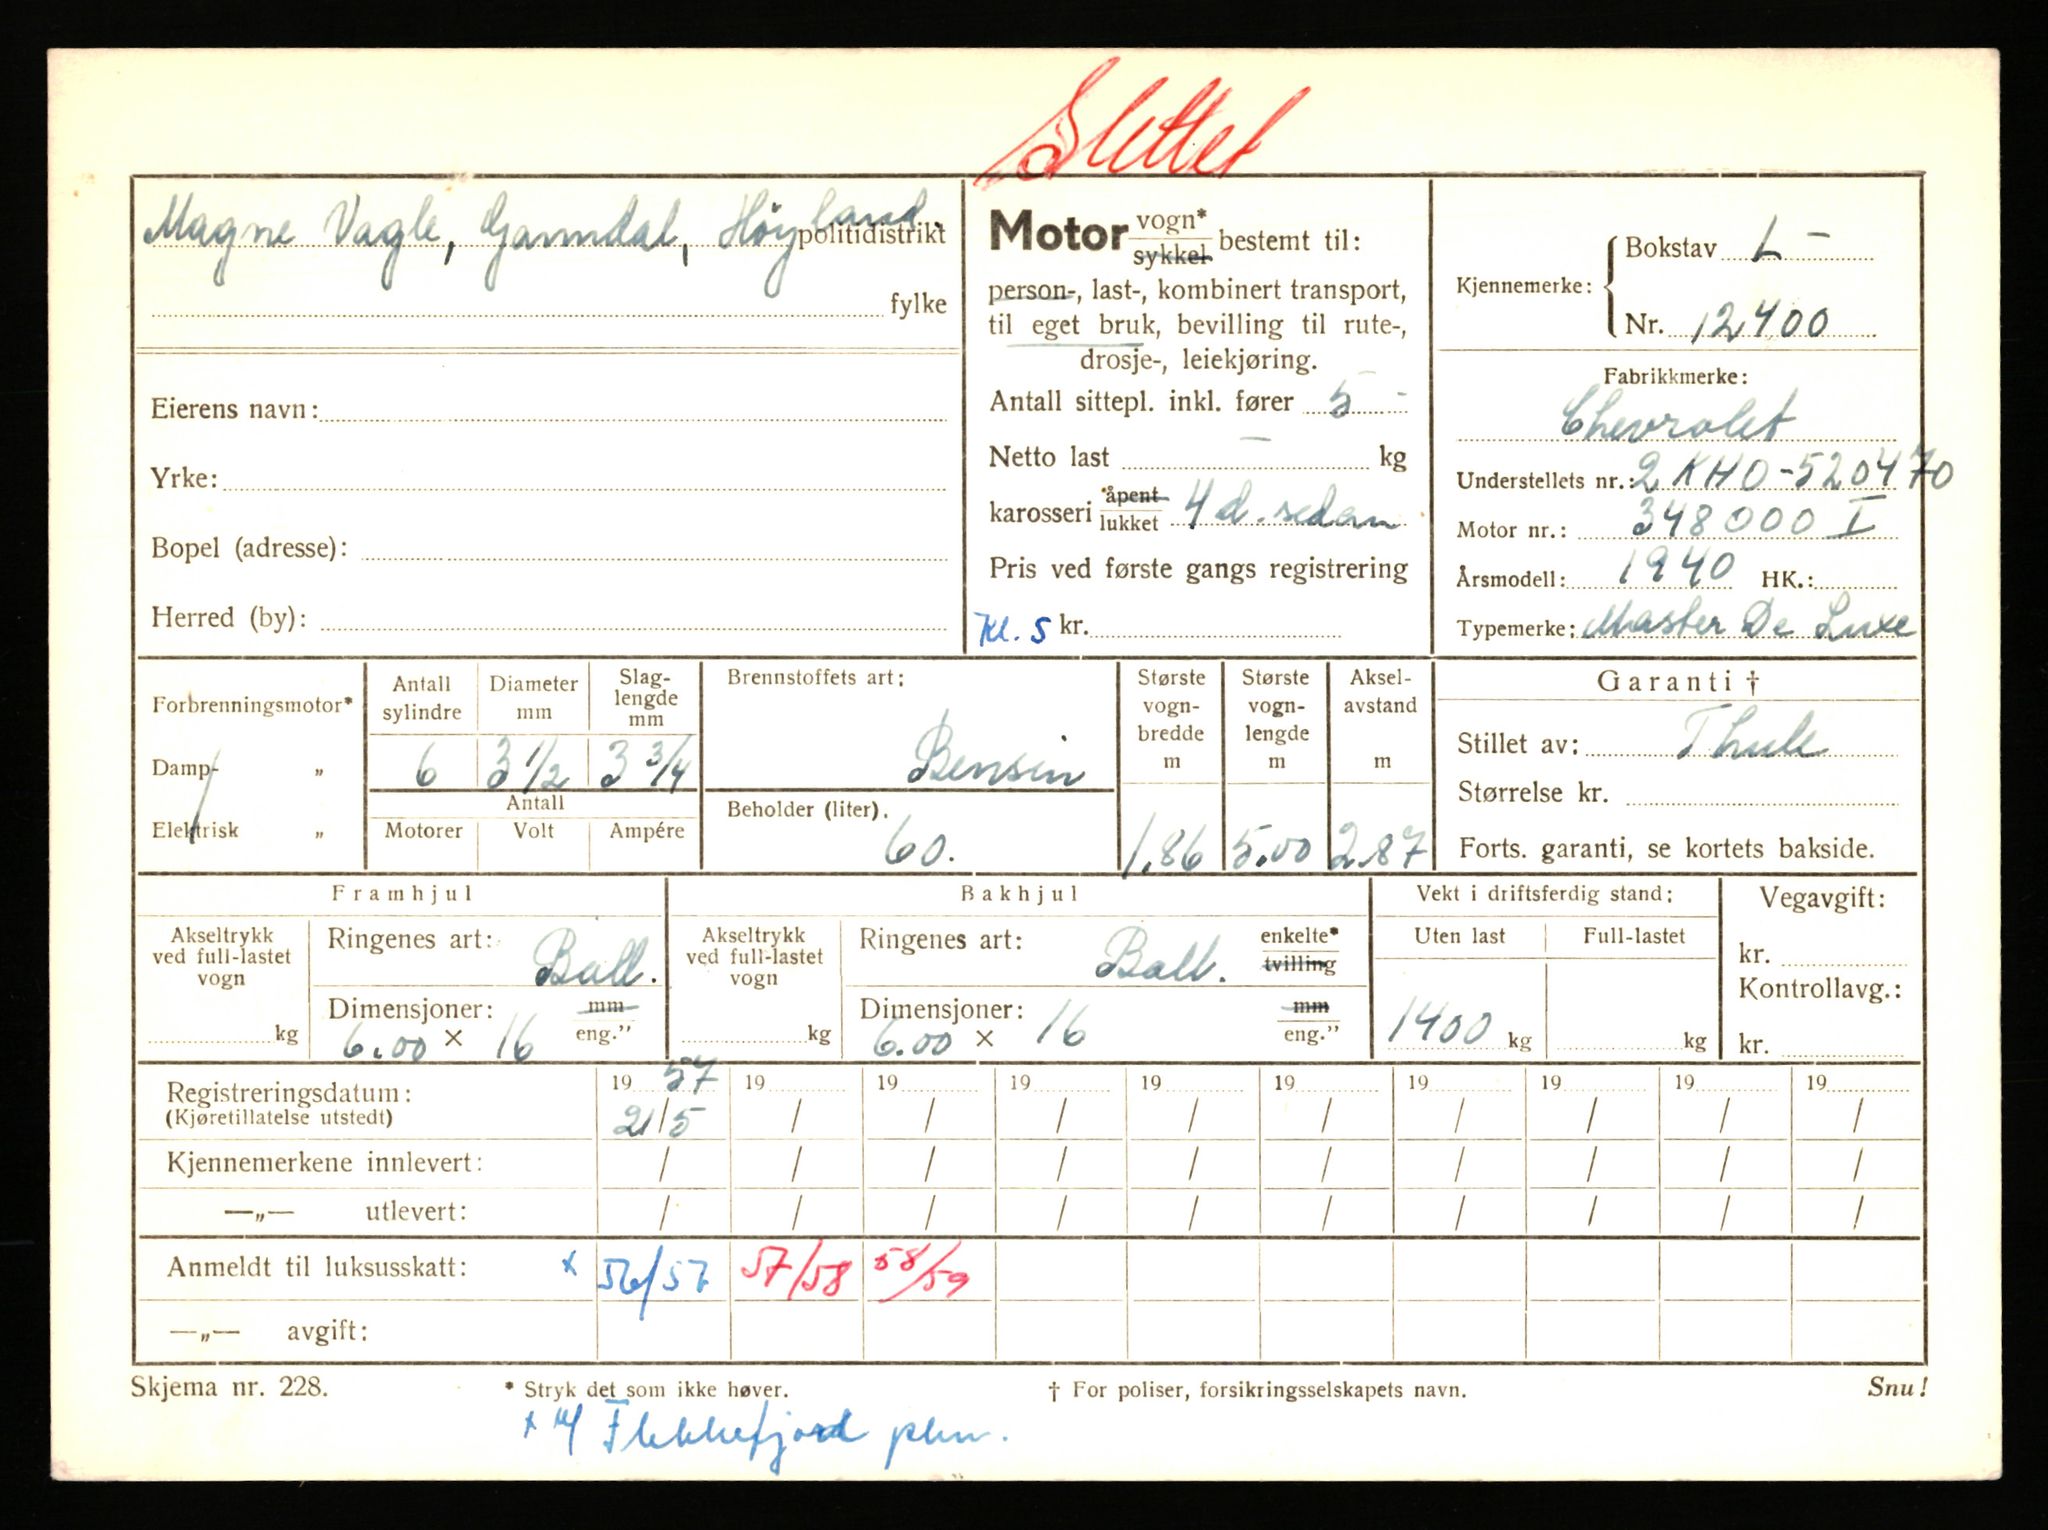 Slettet
Magne Vagle, Ganndal, Høyland. politidistrikt
fylke
Eierens navn:
Yrke:
Bopel (adresse):
Herred (by):
Motor vogn* sykkel bestemt til:
person-, last-, kombinert transport,
til eget bruk, bevilling til rute-,
drosje-, leiekjøring.
Antall sittepl. inkl. fører 5 -
Netto last — kg
karosseri *åpent lukket 4 d. sedan
Pris ved første gangs registrering
Kl. 5 kr.
Kjennemerke: Bokstav L -
Nr. 12400
Fabrikkmerke:
Chevrolet
Understellets nr.: 2 KHO-520470
Motor nr.: 348000 I
Årsmodell: 1940 HK.:
Typemerke: Master De Luxe
Forbrenningsmotor*
Damp- „
Elektrisk „
Antall sylindre
6
Diameter mm
3 1/2
Slaglengde mm
3 3/4
Antall
Motorer Volt Ampére
Brennstoffets art:
Bensin
Beholder (liter).
60.
Største vognbredde m
1.86
Største vognlengde m
5.00
Akselavstand m
2.87
Garanti †
Stillet av: Thule
Størrelse kr.
Forts. garanti, se kortets bakside.
Framhjul
Akseltrykk ved full-lastet vogn
kg
Ringenes art: Ball.
Dimensjoner: mm
6.00 × 16 eng.”
Bakhjul
Akseltrykk ved full-lastet vogn
kg
Ringenes art: Ball. enkelte* tvilling
Dimensjoner: mm
6.00 × 16 eng.”
Vekt i driftsferdig stand:
Uten last Full-lastet
1400 kg kg
Vegavgift:
kr.
Kontrollavg.:
kr.
Registreringsdatum: 19 57 19 19 19 19 19 19 19 19 19
(Kjøretillatelse utstedt) 21/5 / / / / / / / / /
Kjennemerkene innlevert: / / / / / / / / / /
—„— utlevert: / / / / / / / / / /
Anmeldt til luksusskatt: x 56/57 57/58 58/59
—„— avgift:
Skjema nr. 228. * Stryk det som ikke høver. † For poliser, forsikringsselskapets navn. Snu!
x Flekkefjord